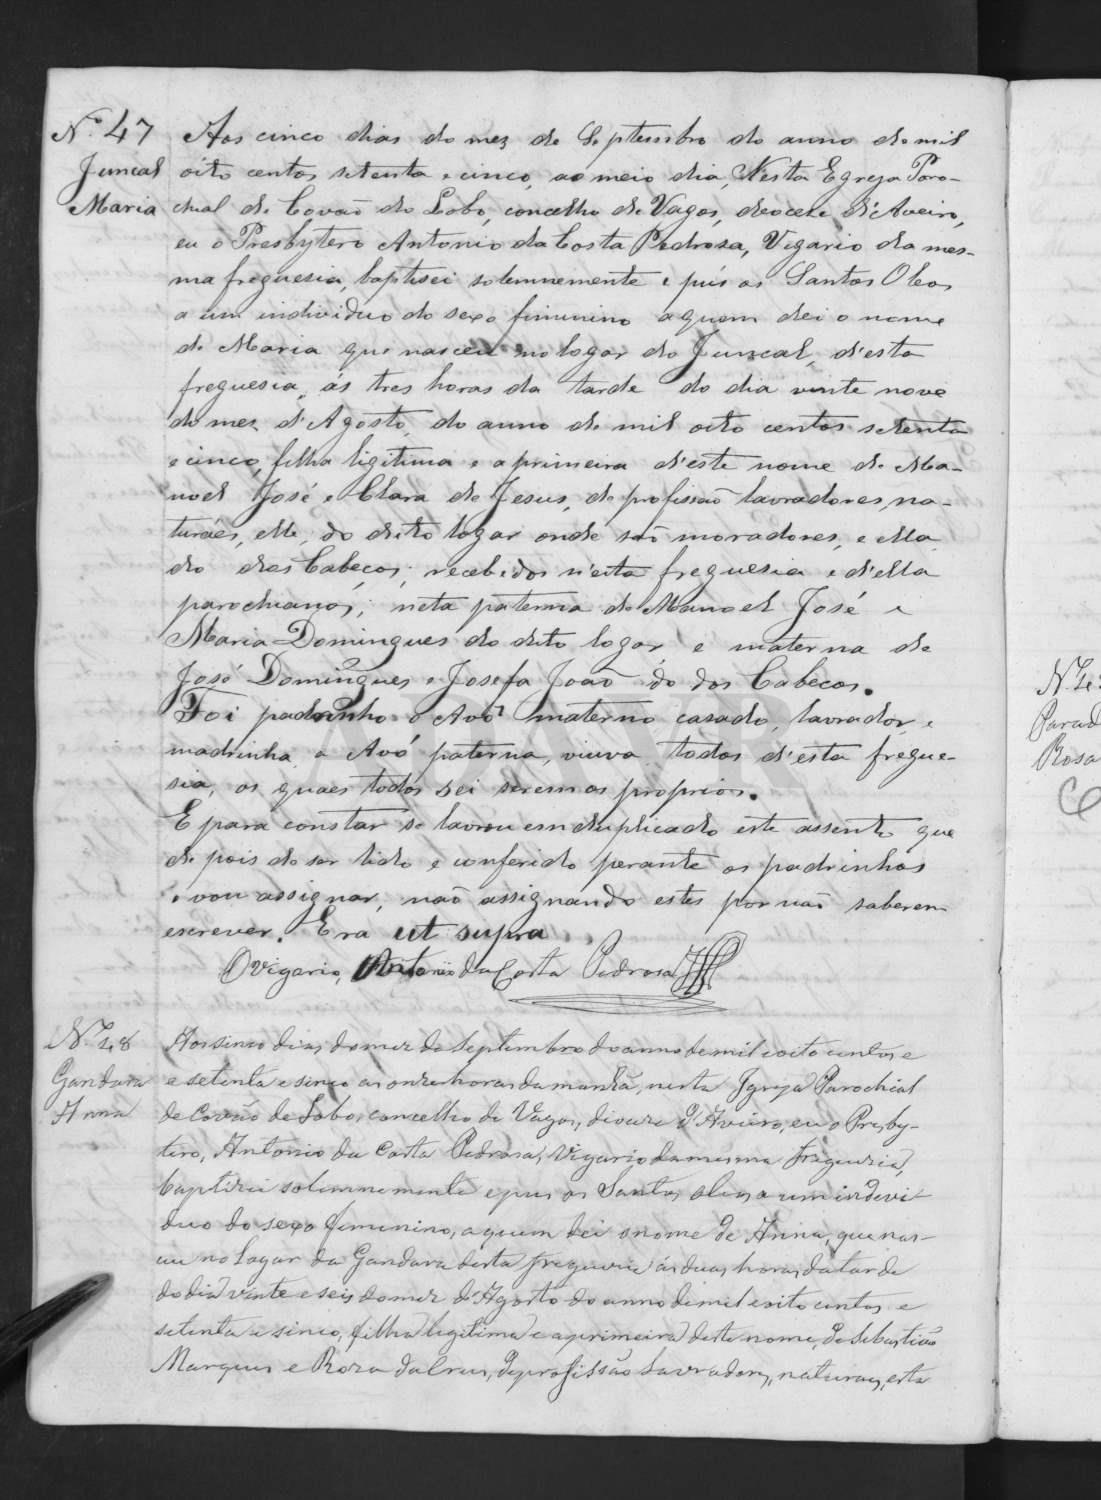 Nº 47
Juncal
Maria
Aos cinco dias do mez de Septembro do anno de mil
oito centos setenta e cinco, ao meio dia, N'esta Egreja Paro-
chial de Covão do Lobo, concelho de Vagos, diocese d'Aveiro,
eu o Presbytero Antonio da Costa Pedrosa, Vigario da mes-
ma freguesia, baptisei solemnemente e puis os Santos Oleos
a um individuo do sexo feminino a quem dei o nome
de Maria que nasceu no logar do Juncal, d'esta
freguesia, ás tres horas da tarde do dia vinte nove
do mez d'Agosto, do anno de mil oito centos setenta
e cinco, filha ligitima e a primeira d'este nome de Ma-
noel José e Clara de Jesus, de profissão lavradores, na-
turáes, elle, do dito logar onde são moradores, e ella
do dos Cabeços; recebidos n'esta freguesia e d'ella
parochianos; neta paterna de Manoel José e
Maria Domingues do dito logar e materna de
José Domingues e Josefa João do dos Cabecos.
Foi padrinho o Avô materno casado, lavrador, e
madrinha a Avó paterna, viuva todos d'esta fregue-
sia, os quaes todos sei serem os proprios.
E para constar se lavrou em duplicado este assento que
de pois de ser lido e conferido perante os padrinhos
o vou assignar, não assignando estes por não saberem
escrever. Era ut supra
O Vigario, Antonio da Costa Pedrosa
N. 48
Gandara
Anna
Aos sinco dias do mez de Septembro do anno de mil e oito centos e
e setenta e sinco as onze horas da manhã, nesta Igreja Parochial
de Covão de Lobo, concelho de Vagos, diocese d'Aveiro, eu o Presby-
tero, Antonio da Costa Pedrosa, Vigario da mesma freguezia,
baptizei solemnemente e pus os Santos oleos a um indevi-
duo do sexo femenino, a quem dei o nome de Anna, que nas-
ceu no lugar da Gandara desta freguezia ás duas horas da tarde
do dia vinte e seis do mez d'Agosto do anno de mil e oito centos e
setenta e sinco, filha legitima e a primeira deste nome, de Sebastião
Marques e Roza da Cruz, de profissão Lavradores, naturaes, esta
N. 4
Parad
Rosa